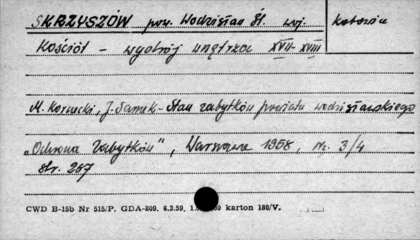 SKRZYSZÓW pow. Wodzisław Śl. woj.
Kościół - wystrój wnętrza XVII-XVIII
M. Kornecki, J. Samek - Stan zabytków powiatu wodzisławskiego
„Ochrona Zabytków", Warszawa 1958, Nr. 3/4
Str. 267
CWD B-15b Nr 515/P. GDA-809. 6.3.59. karton 180/V.